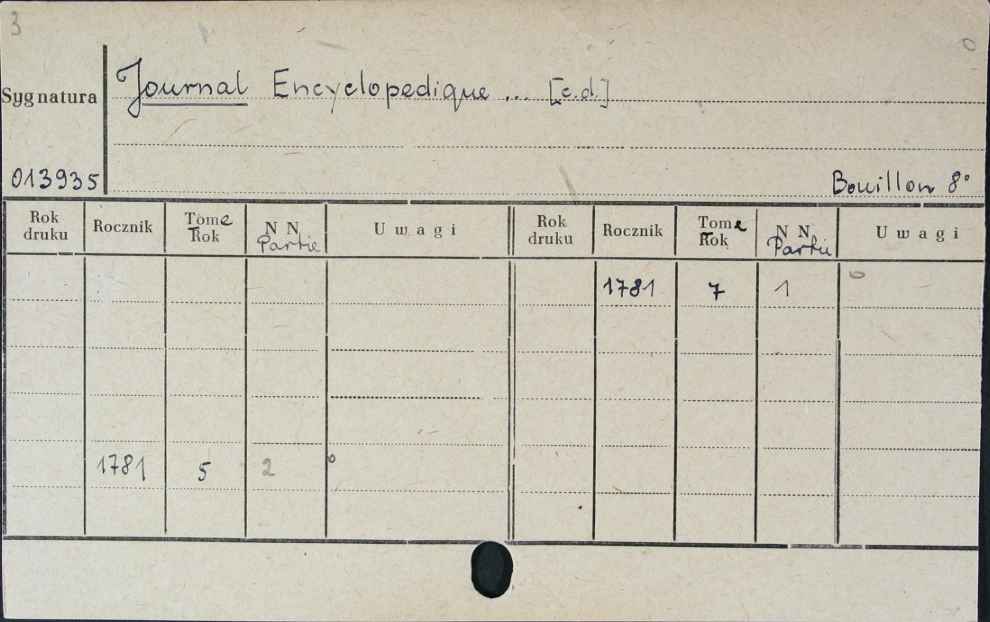 3
Sygnatura
Journal Encyclopedique ... [c.d.]
013935
Bouillon 8°
Rok druku Rocznik Tome Rok N N Partie Uwagi Rok druku Rocznik Tome Rok N N Partie Uwagi
1781 7 1
1781 5 2